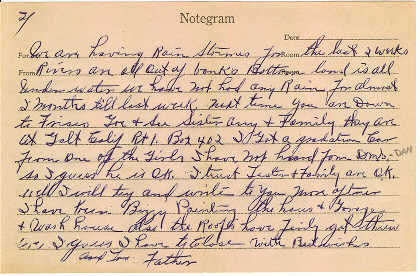 2/
Notegram
Date
For We are having Rain Stormes for Room the last 2 weeks
From Rivers are all out of banks Bottom land is all
under water we have not had any Rain for almost
2 months till last week. next time you are down
to Frisco Go & see Sister Amy & Family they are
at Galt Calif Rt 1. Box 402 I Got a graduation Car
from one of the Girls I have not heard from Dan - DAN
so I guess he is OK. I trust Lester & Family are OK.
well I will try and write to you more often
I have been Busy Painting the house & Garage
& Wash house also the Roofs have finly got threw
I guess I have to Close with Best wishes
and Love Father